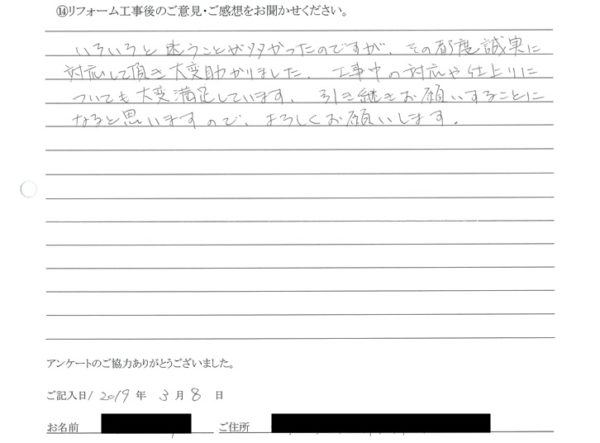 ⑭リフォーム工事後のご意見・ご感想をお聞かせください。
いろいろと迷うことが多かったのですが、その都度誠実に
対応して頂き大変助かりました。工事中の対応や仕上りに
ついても大変満足しています。引き継きお願いすることに
なると思いますので、よろしくお願いします。
アンケートのご協力ありがとうございました。
ご記入日/2019年3月8日
お名前 ご住所